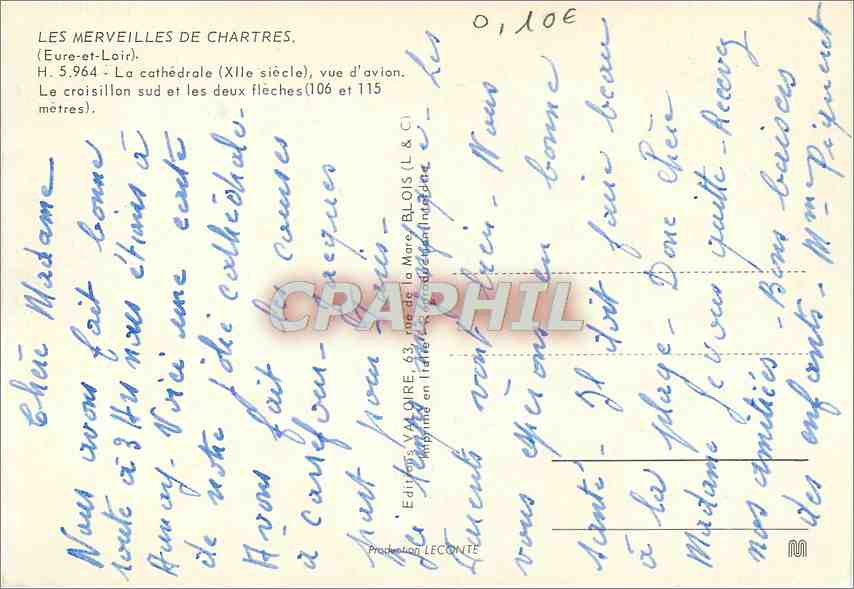 0,10€
LES MERVEILLES DE CHARTRES.
(Eure-et-Loir).
H. 5.964 - La cathédrale (XIIe siècle), vue d'avion.
Le croisillon sud et les deux flèches (106 et 115
mètres).
Chère Madame
Nous avons fait bonne
route à 3 H nous étions à
Aunay. Voici une carte
de notre jolie cathédrale.
Avons fait les courses
à carrefour - Jacques
part pour
Le temps magnifique - Les
vont bien - Nous
vous espérons en bonne
santé. Il doit faire beau
à la plage - Donc Chère
Madame je vous quitte - Recevez
nos amitiés - Bons baisers
des enfants - Mme
Editions VALOIRE, 63, rue de la Mare, BLOIS (L & C)
Imprimé en Italie - Reproduction Interdite
CPAPHIL
Production LECONTE